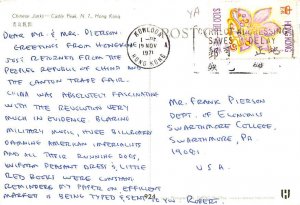 Chinese Junks - Castle Peak, N. T., Hong Kong
DEAR MR & MRS. PIERSON:
GREETINGS FROM HONGKONG
JUST RETURNED FROM THE
PEOPLES REPUBLIC OF CHINA AND
THE CANTON TRADE FAIR.
CHINA WAS ABSOLUTELY FASCINATING
WITH THE REVOLUTION VERY
MUCH IN EVIDENCE. BLARING
MILITARY MUSIC, HUGE BILLBOARD
DAMNING AMERICAN IMPERIALISTS
AND ALL THEIR RUNNING DOGS,
UNIFORM PEASANT DRESS & LITTLE
RED BOOKS WERE CONSTANT
REMINDERS. MY PAPER ON EFFICIENT
MARKET IS BEING TYPED & SENT TO YOU. ROBERT.
KOWLOON
19 NOV
1971
HONG KONG
POSTCARD
ADDRESSING
SAVES DELAY
HONG KONG
YA
MR. FRANK PIERSON
DEPT. OF ECONOMICS
SWARTHMORE COLLEGE,
SWARTHMORE PA
19081
USA